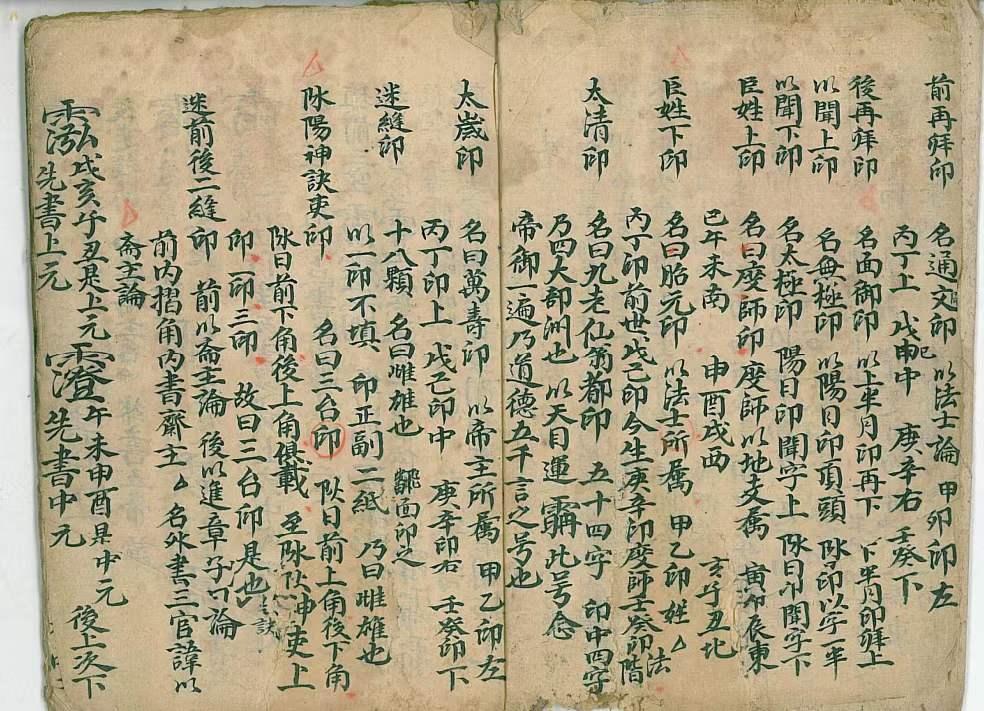 前再拜印 名通文印 以法士論 甲卯印左
丙丁上 戊申中 庚辛右 壬癸下
己
後再拜印 名面御印 以上半月印再下 下半月印拜上
以聞上印 名無極印 以陽日印頂頭 阥日印以字一半
以聞下印 名太極印 陽日印聞字上 阥日印聞字下
臣姓上印 名曰度師印 度師以地支属 寅卯辰東
巳午未南 申酉戌西 亥子丑北
臣姓下印 名曰胎元印 以法士所属 甲乙印姓 法
丙丁印前世 戊己印今生 庚辛印度師 壬癸印階
太清印 名曰九老仙翁都印 五十四字 印中四字
乃四大部洲也 以天目運 此号念
帝御一遍乃道德五千言之号也
太歲印 名曰萬壽印 以帝主所属 甲乙印左
丙丁印上 戊己印中 庚辛印右 壬癸印下
迷縫印 十八顆 名曰雌雄也 面印之
以一印不填 印正副二紙 乃曰雌雄也
阥陽神訣吏印 名曰三台印 阥日前上角後下角
阥日前下角後上角俱載 至阥 神吏上
印一印三印 故曰三台印是也
迷前後二縫印 前以斋主論 後以進章 子口論
前内摺角内書齋主 名外書三官諱以
斋主論
戊亥子丑是上元 午未申酉是中元
先書上元 先書中元 後上次下